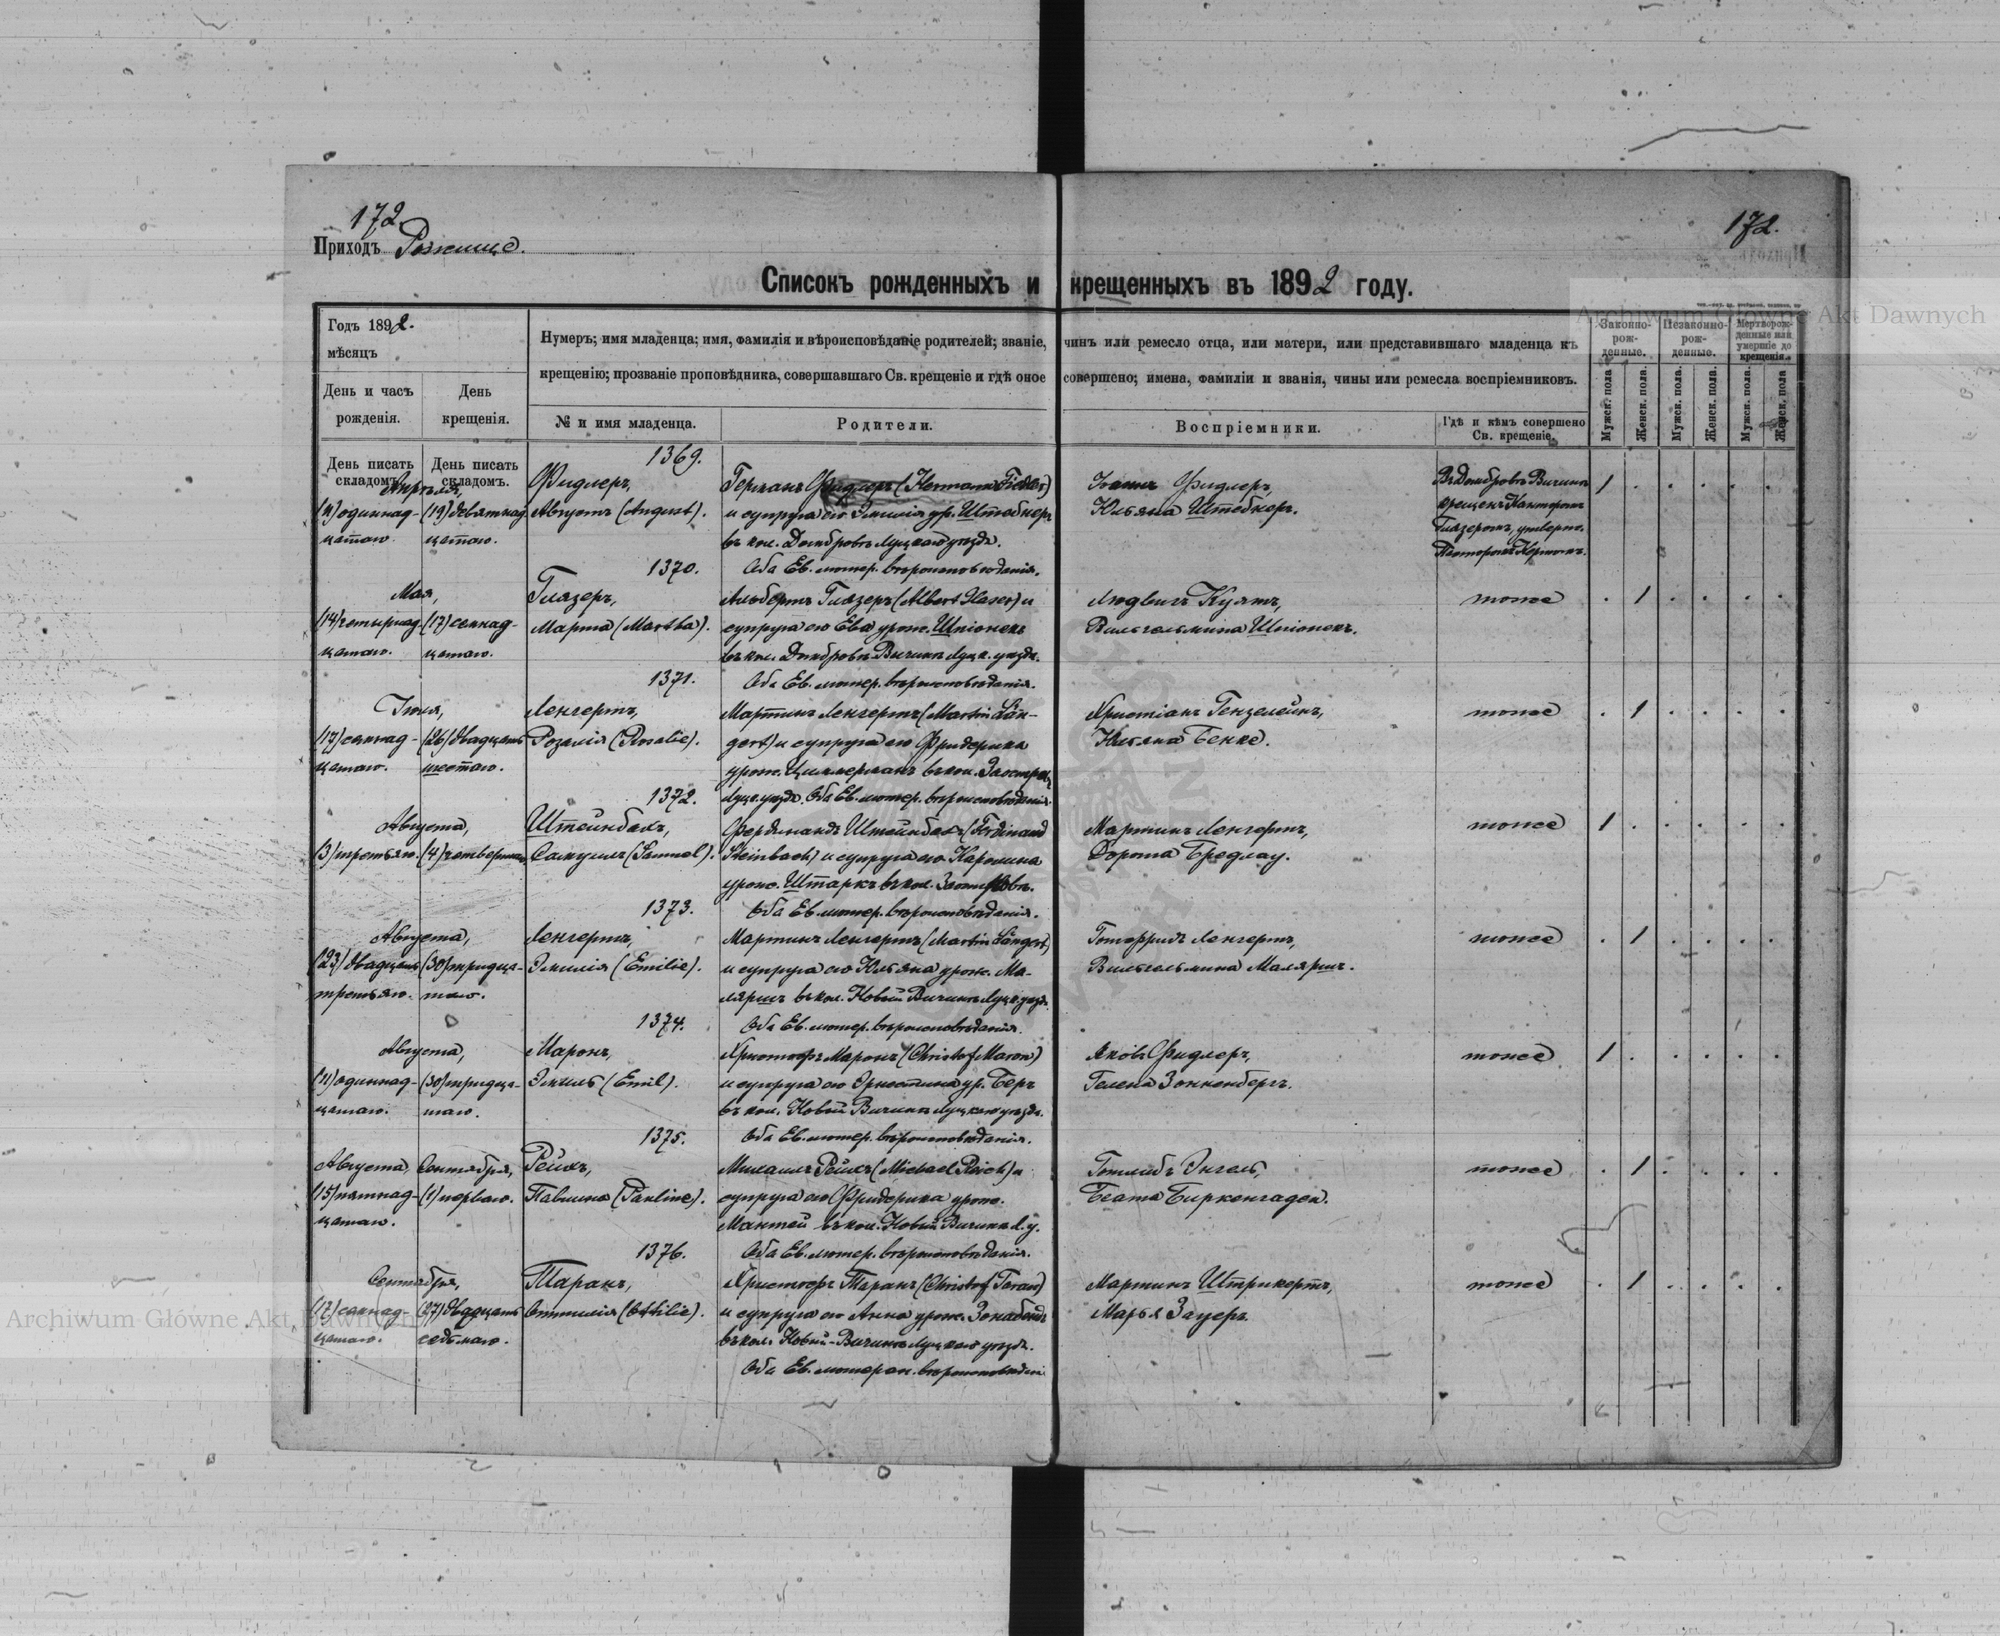 172
172.
Приходъ Рожище.
Списокъ рожденныхъ и крещенныхъ въ 1892 году.
Годъ 1892.
мѣсяцъ
День и часъ рожденія.
День крещенія.
Нумеръ; имя младенца; имя, фамилія и вѣроисповѣданіе родителей; званіе, чинъ или ремесло отца, или матери, или представившаго младенца къ
крещенію; прозваніе проповѣдника, совершавшаго Св. крещеніе и гдѣ оное совершено; имена, фамиліи и званія, чины или ремесла воспріемниковъ.
№ и имя младенца.
Родители.
Воспріемники.
Гдѣ и кѣмъ совершено
Св. крещеніе.
Законно-
рож-
денные.
Незаконно-
рож-
денные.
Мертворож-
денные или
умершіе до
крещенія.
Мужск. пола
Женск. пола.
Мужск. пола.
Женск. пола.
Мужск. пола.
Женск. пола
День писать
складомъ.
День писать
складомъ.
1369.
Апрѣля,
(11) одиннад-
цатаго.
(19) девятнад-
цатаго.
Фидлеръ,
Августъ (August).
Германъ Фидлеръ (Hermann Fiedler)
и супруга его Эмилія ур. Штебнеръ
въ кол. Домбровъ Луцкаго уѣзда.
Оба Ев. лютер. вѣроисповѣданія.
Іоганъ Фидлеръ,
Юльяна Штебнеръ.
Въ Домбровъ Вичинъ
крещенъ Канторомъ
Глазеромъ, утвержд.
Пасторомъ Кернъ.
1 . . . . .
1370.
Мая,
(14) четырнад-
цатаго.
(17) семнад-
цатаго.
Глазеръ,
Марта (Martha).
Альбертъ Глазеръ (Albert Glaser) и
супруга его Ева урож. Шпіонекъ
въ кол. Домбровъ Вичинъ Луцк. уѣзда.
Оба Ев. лютер. вѣроисповѣданія.
Людвигъ Куятъ,
Вильгельмина Шпіонекъ.
тоже
. 1 . . . .
1371.
(17) семнад-
цатаго.
(26) двадцать
шестаго.
Ленгертъ,
Розалія (Rosalie).
Мартинъ Ленгертъ (Martin Län-
gert) и супруга его Фридерика
урож. Циммерманъ въ кол.
Луцк. уѣзда. Оба Ев. лютер. вѣроисповѣданія.
Христіанъ Гензелейнъ,
Юльяна Бенке.
тоже
. 1 . . . .
1372.
Августа,
(3) третьяго.
(4) четвертаго.
Штейнбахъ,
Самуилъ (Samuel).
Фердинандъ Штейнбахъ (Ferdinand
Steinbach) и супруга его Каролина
урож. Штаркъ въ кол.
Оба Ев. лютер. вѣроисповѣданія.
Мартинъ Ленгертъ,
Дорота Бредлау.
тоже
1 . . . . .
1373.
Августа,
(23) двадцать
третьяго.
(30) тридца-
таго.
Ленгертъ,
Эмилія (Emilie).
Мартинъ Ленгертъ (Martin Längert)
и супруга его Юльяна урож. Ма-
ляришъ въ кол. Новый Вичинъ Луцк. уѣзд.
Оба Ев. лютер. вѣроисповѣданія.
Готфридъ Ленгертъ,
Вильгельмина Маляришъ.
тоже
. 1 . . . .
1374.
Августа,
(11) одиннад-
цатаго.
(30) тридца-
таго.
Маронъ,
Эмиль (Emil).
Христофъ Маронъ (Christof Maron)
и супруга его Эрнестина ур. Беръ
въ кол. Новый Вичинъ Луцкаго уѣзда.
Оба Ев. лютер. вѣроисповѣданія.
Яковъ Фидлеръ,
Гелена Зонненбергъ.
тоже
1 . . . . .
1375.
Августа,
(15) пятнад-
цатаго.
Сентября,
(1) перваго.
Рейхъ,
Павлина (Pauline).
Михаилъ Рейхъ (Michael Reich) и
супруга его Фридерика урож.
Мантей въ кол. Новый Вичинъ Л. у.
Оба Ев. лютер. вѣроисповѣданія.
Готлибъ Энгель,
Беата Биркенгаген.
тоже
. 1 . . . .
1376.
Сентября,
(17) семнад-
цатаго.
(27) двадцать
седьмаго.
Таранъ,
Оттилія (Ottilie).
Христофъ Таранъ (Christof Taran)
и супруга его Анна урож.
въ кол. Новый-Вичинъ Луцкаго уѣзда.
Оба Ев. лютеран. вѣроисповѣданія
Мартинъ Штрикертъ,
Марья Зауеръ.
тоже
. 1 . . . .
Archiwum Główne Akt Dawnych
Archiwum Główne Akt Dawnych